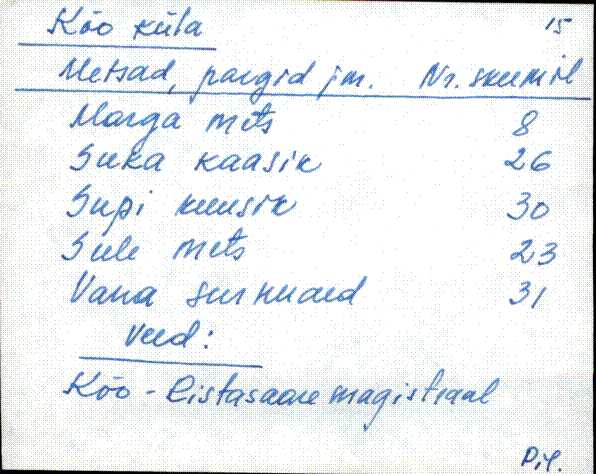 Kõo küla 15
Metsad, pargid jm. Nr. skeemil
Marga mets 8
Suka kaasik 26
Supi kuusik 30
Sule mets 23
Vana surnuaed 31
Veed:
Kõo - Ristasaare magistraal
Pil.